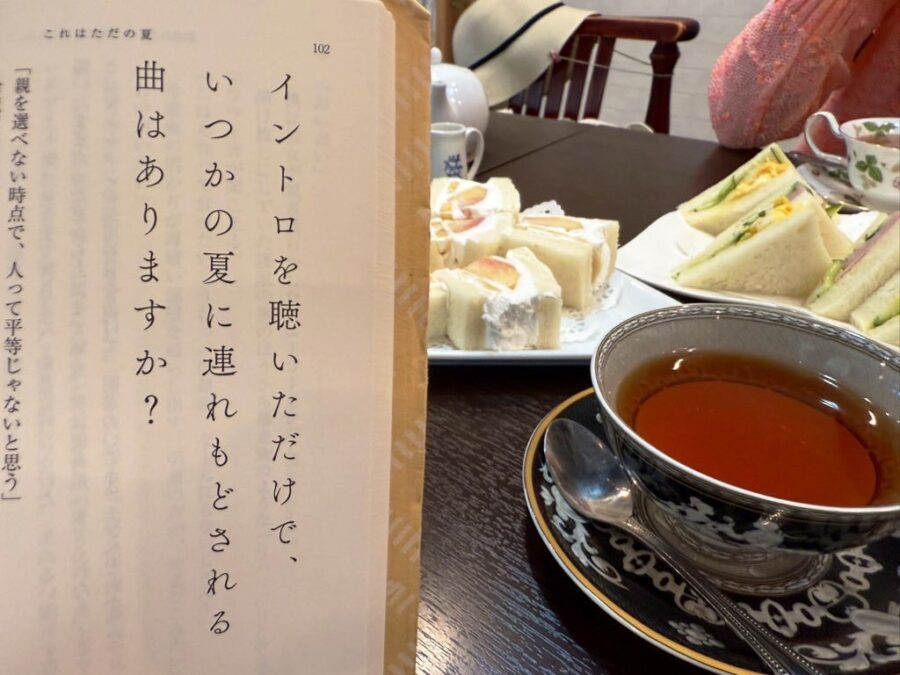 これはただの夏
102
イントロを聴いただけで、
いつかの夏に連れもどされる
曲はありますか？
「親を選べない時点で、人って平等じゃないと思う」